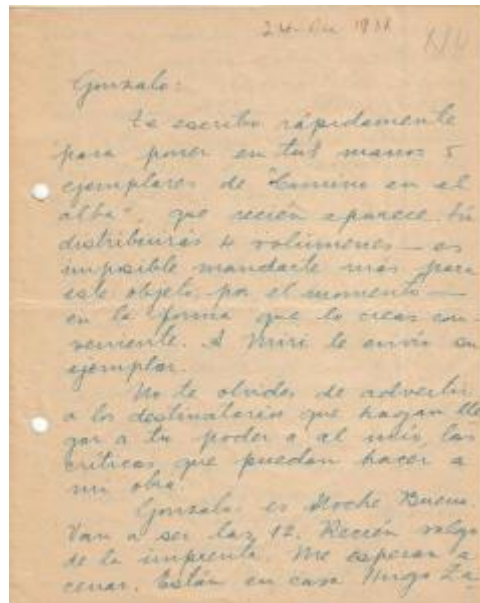 24- Dic 1938
Gonzalo:
Te escribo rápidamente
para poner en tus manos 5
ejemplares de "Camino en el
alba", que recién aparece. Tú
distribuirás 4 volúmenes — es
imposible mandarte más para
este objeto, por el momento —
en la forma que lo creas con-
veniente. A Miri le envío su
ejemplar.
No te olvides de advertir
a los destinatarios que hagan lle-
gar a tu poder o al mío, las
críticas que puedan hacer a
mi obra.
Gonzalo: es Noche Buena.
Van a ser las 12. Recién salgo
de la imprenta. Me esperan a
cenar. Están en casa Hugo Za-